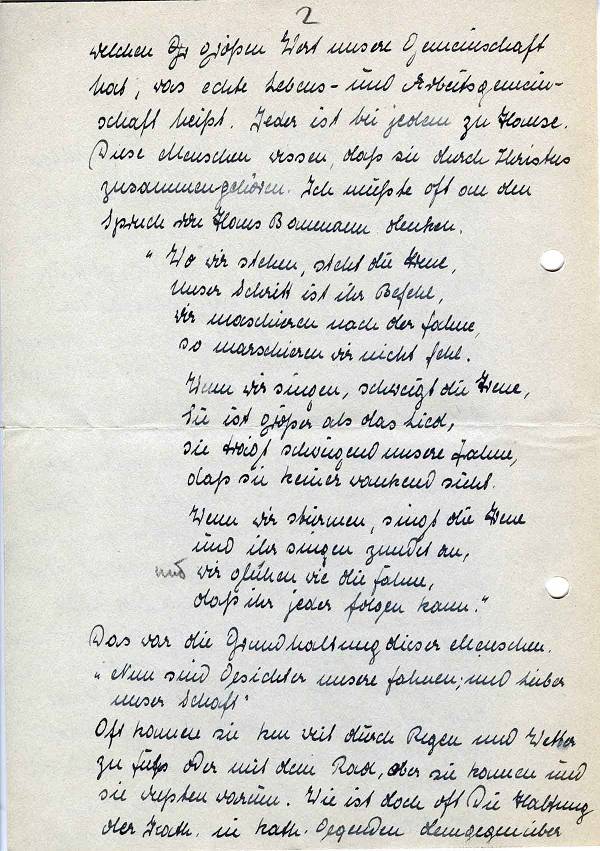 2
welchen großen Wert unsere Gemeinschaft
hat, was echte Lebens- und Arbeitsgemein-
schaft heißt. Jeder ist bei jedem zu Hause.
Diese Menschen wissen, daß sie durch Christus
zusammengehören. Ich mußte oft an den
Spruch von Hans Baumann denken.
"Wo wir stehen, steht die Treue,
unser Schritt ist ihr Befehl,
wir maschieren nach der Fahne,
so marschieren wir nicht fehl.
Wenn wir singen, schweigt die Treue,
Sie ist größer als das Lied,
sie trägt schweigend unsere Fahne,
daß sie keiner wankend sieht.
Wenn wir stürmen, singt die Treue
und ihr singen zündet an,
und wir glühen wie die Fahne,
daß ihr jeder folgen kann."
Das war die Grundhaltung dieser Menschen.
"Nun sind Gesichter unsere Fahnen; und Leiber
unser Schaft"
Oft kamen sie weit durch Regen und Wetter
zu Fuß oder mit dem Rad, aber sie kamen und
sie wußten warum. Wie ist doch oft die Haltung
der Kath. in kath. Gegenden demgegenüber